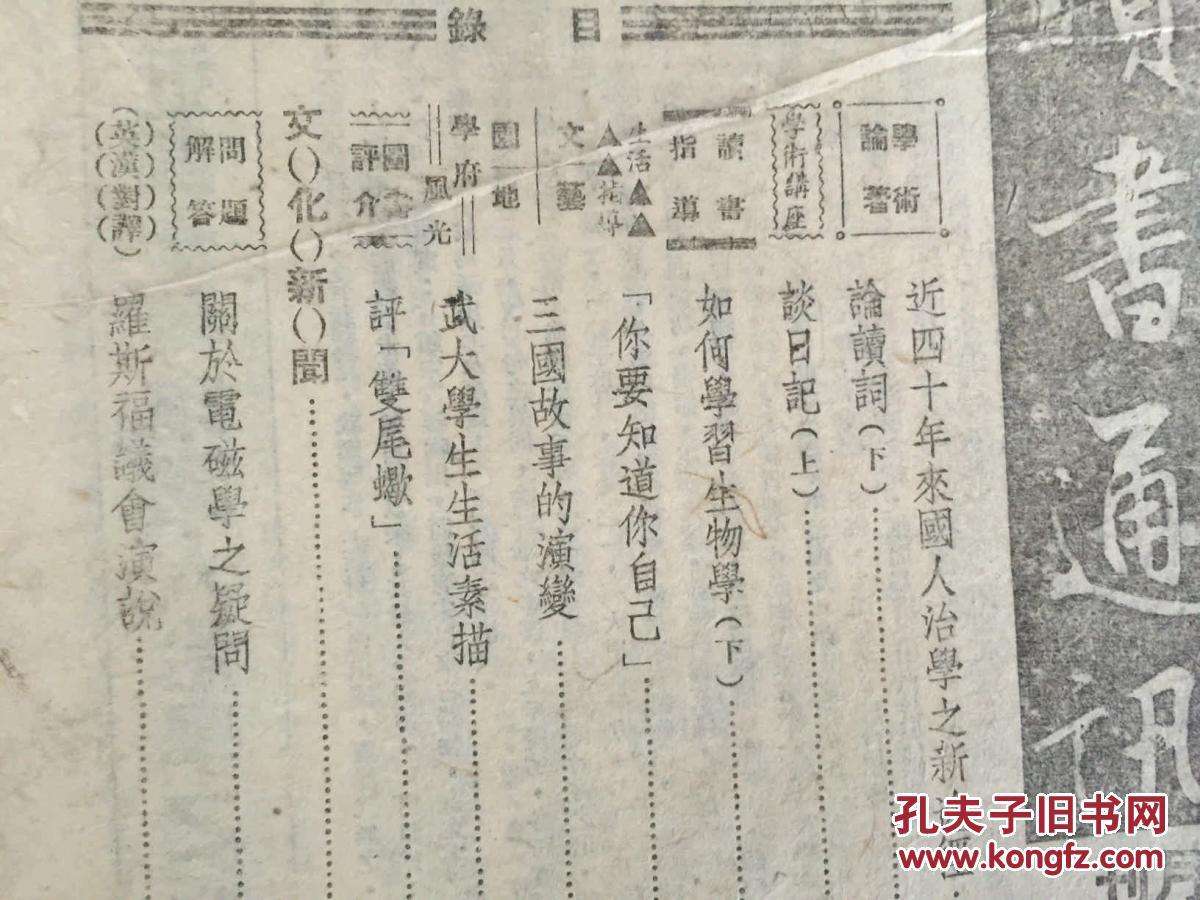 書通訊
目錄
學術論著
近四十年來國人治學之新
論讀詞(下)
學術講座
談日記(上)
讀書指導
如何學習生物學(下)
生活指導
「你要知道你自己」
文藝園地
三國故事的演變
學府風光
武大學生生活素描
圖書評介
評「雙尾蠍」
文()化()新()聞
問題解答
關於電磁學之疑問
(英)(漢)(對)(譯)
羅斯福議會演說
孔夫子旧书网
www.kongfz.com